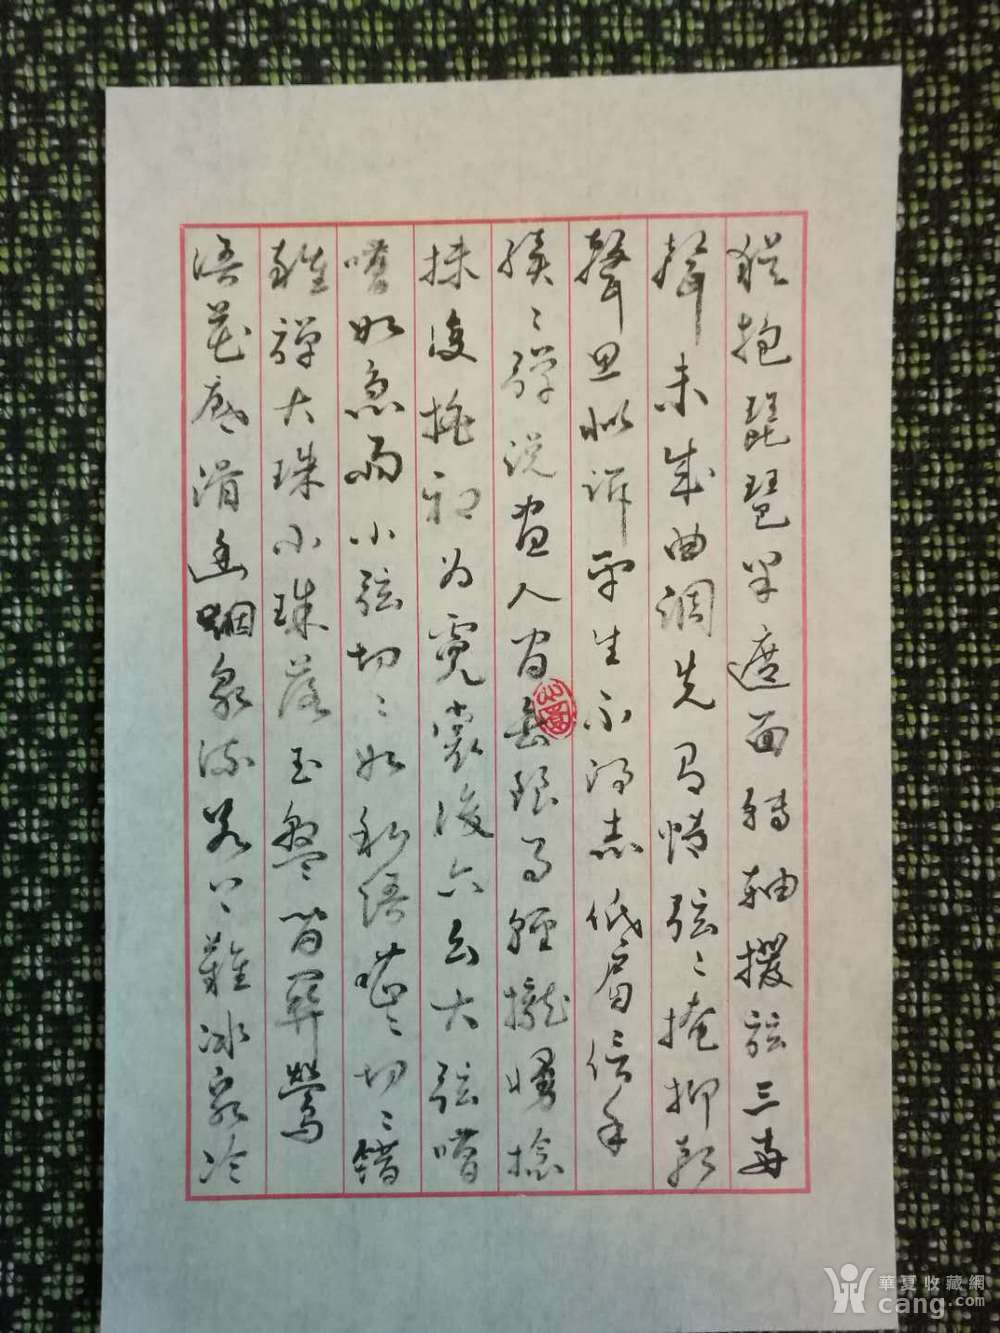 猶抱琵琶半遮面轉軸撥絃三兩
聲未成曲調先有情弦〻掩抑聲
聲思似訴平生不得志低眉信手
續〻彈說盡人間無限事輕攏慢捻
抹復挑初為霓裳後六幺大弦嘈
嘈如急雨小弦切〻如私語嘈〻切〻錯
雜彈大珠小珠落玉盤間關鶯
語花底滑幽咽泉流冰下難冰泉冷
華夏收藏網
cang.com